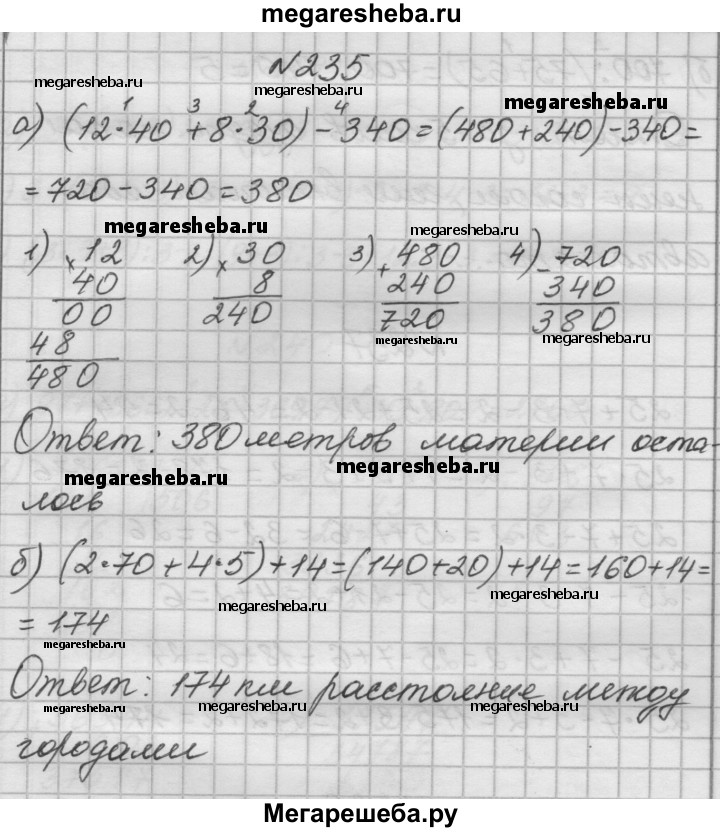 megaresheba.ru
№235
megaresheba.ru
megaresheba.ru
megaresheba.ru
1 3 2 4
а) (12·40 + 8·30) - 340 = (480 + 240) - 340 =
= 720 - 340 = 380
megaresheba.ru
megaresheba.ru
1) × 12 2) × 30 3) + 480 4) - 720
40 8 240 340
00 240 720 380
megaresheba.ru
megaresheba.ru
megaresheba.ru
48
480
Ответ: 380 метров материи оста-
megaresheba.ru
megaresheba.ru
лось
б) (2·70 + 4·5) + 14 = (140 + 20) + 14 = 160 + 14 =
megaresheba.ru
megaresheba.ru
= 174
megaresheba.ru
Ответ: 174 км расстояние между
megaresheba.ru
megaresheba.ru
megaresheba.ru
городами
Мегарешеба.ру